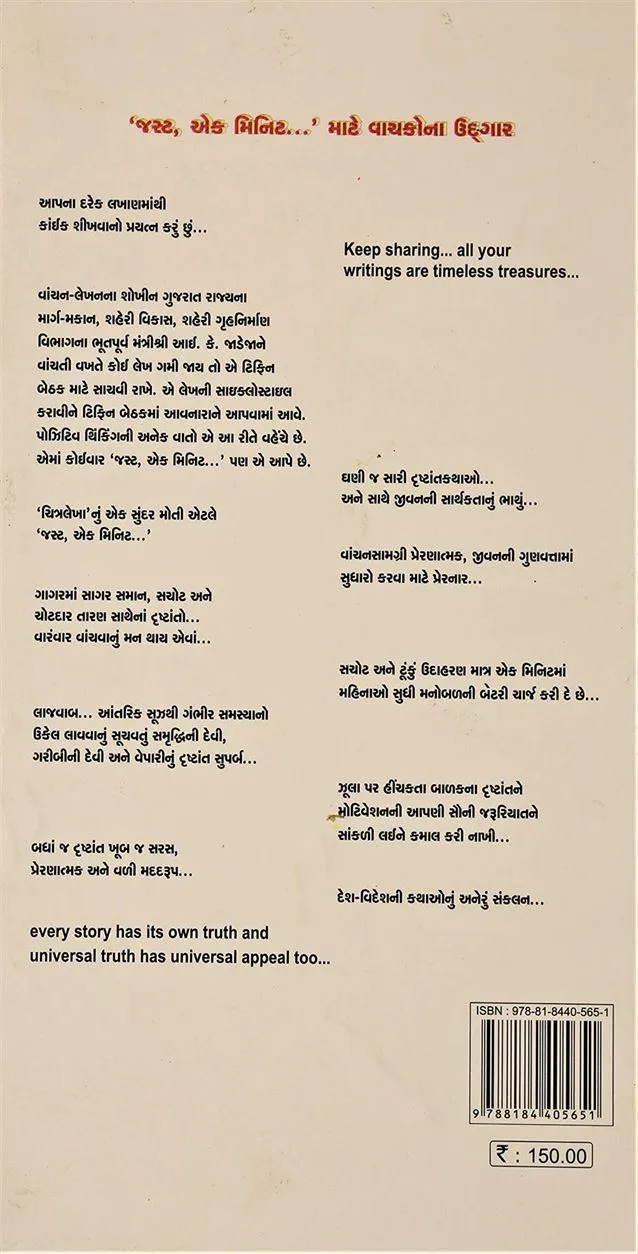 ‘જસ્ટ, એક મિનિટ...’ માટે વાચકોના ઉદ્‌ગાર
આપના દરેક લખાણમાંથી
કાંઈક શીખવાનો પ્રયત્ન કરું છું...
વાંચન-લેખનના શોખીન ગુજરાત રાજ્યના
માર્ગ-મકાન, શહેરી વિકાસ, શહેરી ગૃહનિર્માણ
વિભાગના ભૂતપૂર્વ મંત્રીશ્રી આઈ. કે. જાડેજાને
વાંચતી વખતે કોઈ લેખ ગમી જાય તો એ ટિફિન
બેઠક માટે સાચવી રાખે. એ લેખની સાઇક્લોસ્ટાઇલ
કરાવીને ટિફિન બેઠકમાં આવનારાને આપવામાં આવે.
પોઝિટિવ થિંકિંગની અનેક વાતો એ આ રીતે વહેંચે છે.
એમાં કોઈવાર ‘જસ્ટ, એક મિનિટ...’ પણ એ આપે છે.
‘ચિત્રલેખા’નું એક સુંદર મોતી એટલે
‘જસ્ટ, એક મિનિટ...’
ગાગરમાં સાગર સમાન, સચોટ અને
ચોટદાર તારણ સાથેનાં દૃષ્ટાંતો...
વારંવાર વાંચવાનું મન થાય એવાં...
લાજવાબ... આંતરિક સૂઝથી ગંભીર સમસ્યાનો
ઉકેલ લાવવાનું સૂચવતું સમૃદ્ધિની દેવી,
ગરીબીની દેવી અને વેપારીનું દૃષ્ટાંત સુપર્બ...
બધાં જ દૃષ્ટાંત ખૂબ જ સરસ,
પ્રેરણાત્મક અને વળી મદદરૂપ...
every story has its own truth and
universal truth has universal appeal too...
Keep sharing... all your
writings are timeless treasures...
ઘણી જ સારી દૃષ્ટાંતકથાઓ...
અને સાથે જીવનની સાર્થકતાનું ભાથું...
વાંચનસામગ્રી પ્રેરણાત્મક, જીવનની ગુણવત્તામાં
સુધારો કરવા માટે પ્રેરનાર...
સચોટ અને ટૂંકું ઉદાહરણ માત્ર એક મિનિટમાં
મહિનાઓ સુધી મનોબળની બેટરી ચાર્જ કરી દે છે...
ઝૂલા પર હીંચકતા બાળકના દૃષ્ટાંતને
મોટિવેશનની આપણી સૌની જરૂરિયાતને
સાંકળી લઈને કમાલ કરી નાખી...
દેશ-વિદેશની કથાઓનું અનેરું સંકલન...
ISBN : 978-81-8440-565-1
9 788184 405651
₹ : 150.00